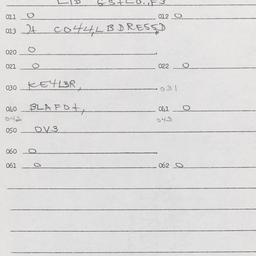 011 0 012 0
013 H CO44LBDRESSD
020 0
021 0 022 0
030 KE4LBR, 031
040 BLAFDT, 041 0
042 043
050 DV3
060 0
061 0 062 0